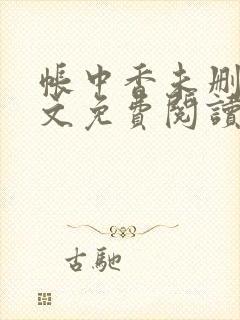 帳中香未刪
文免費閱讀
古馳